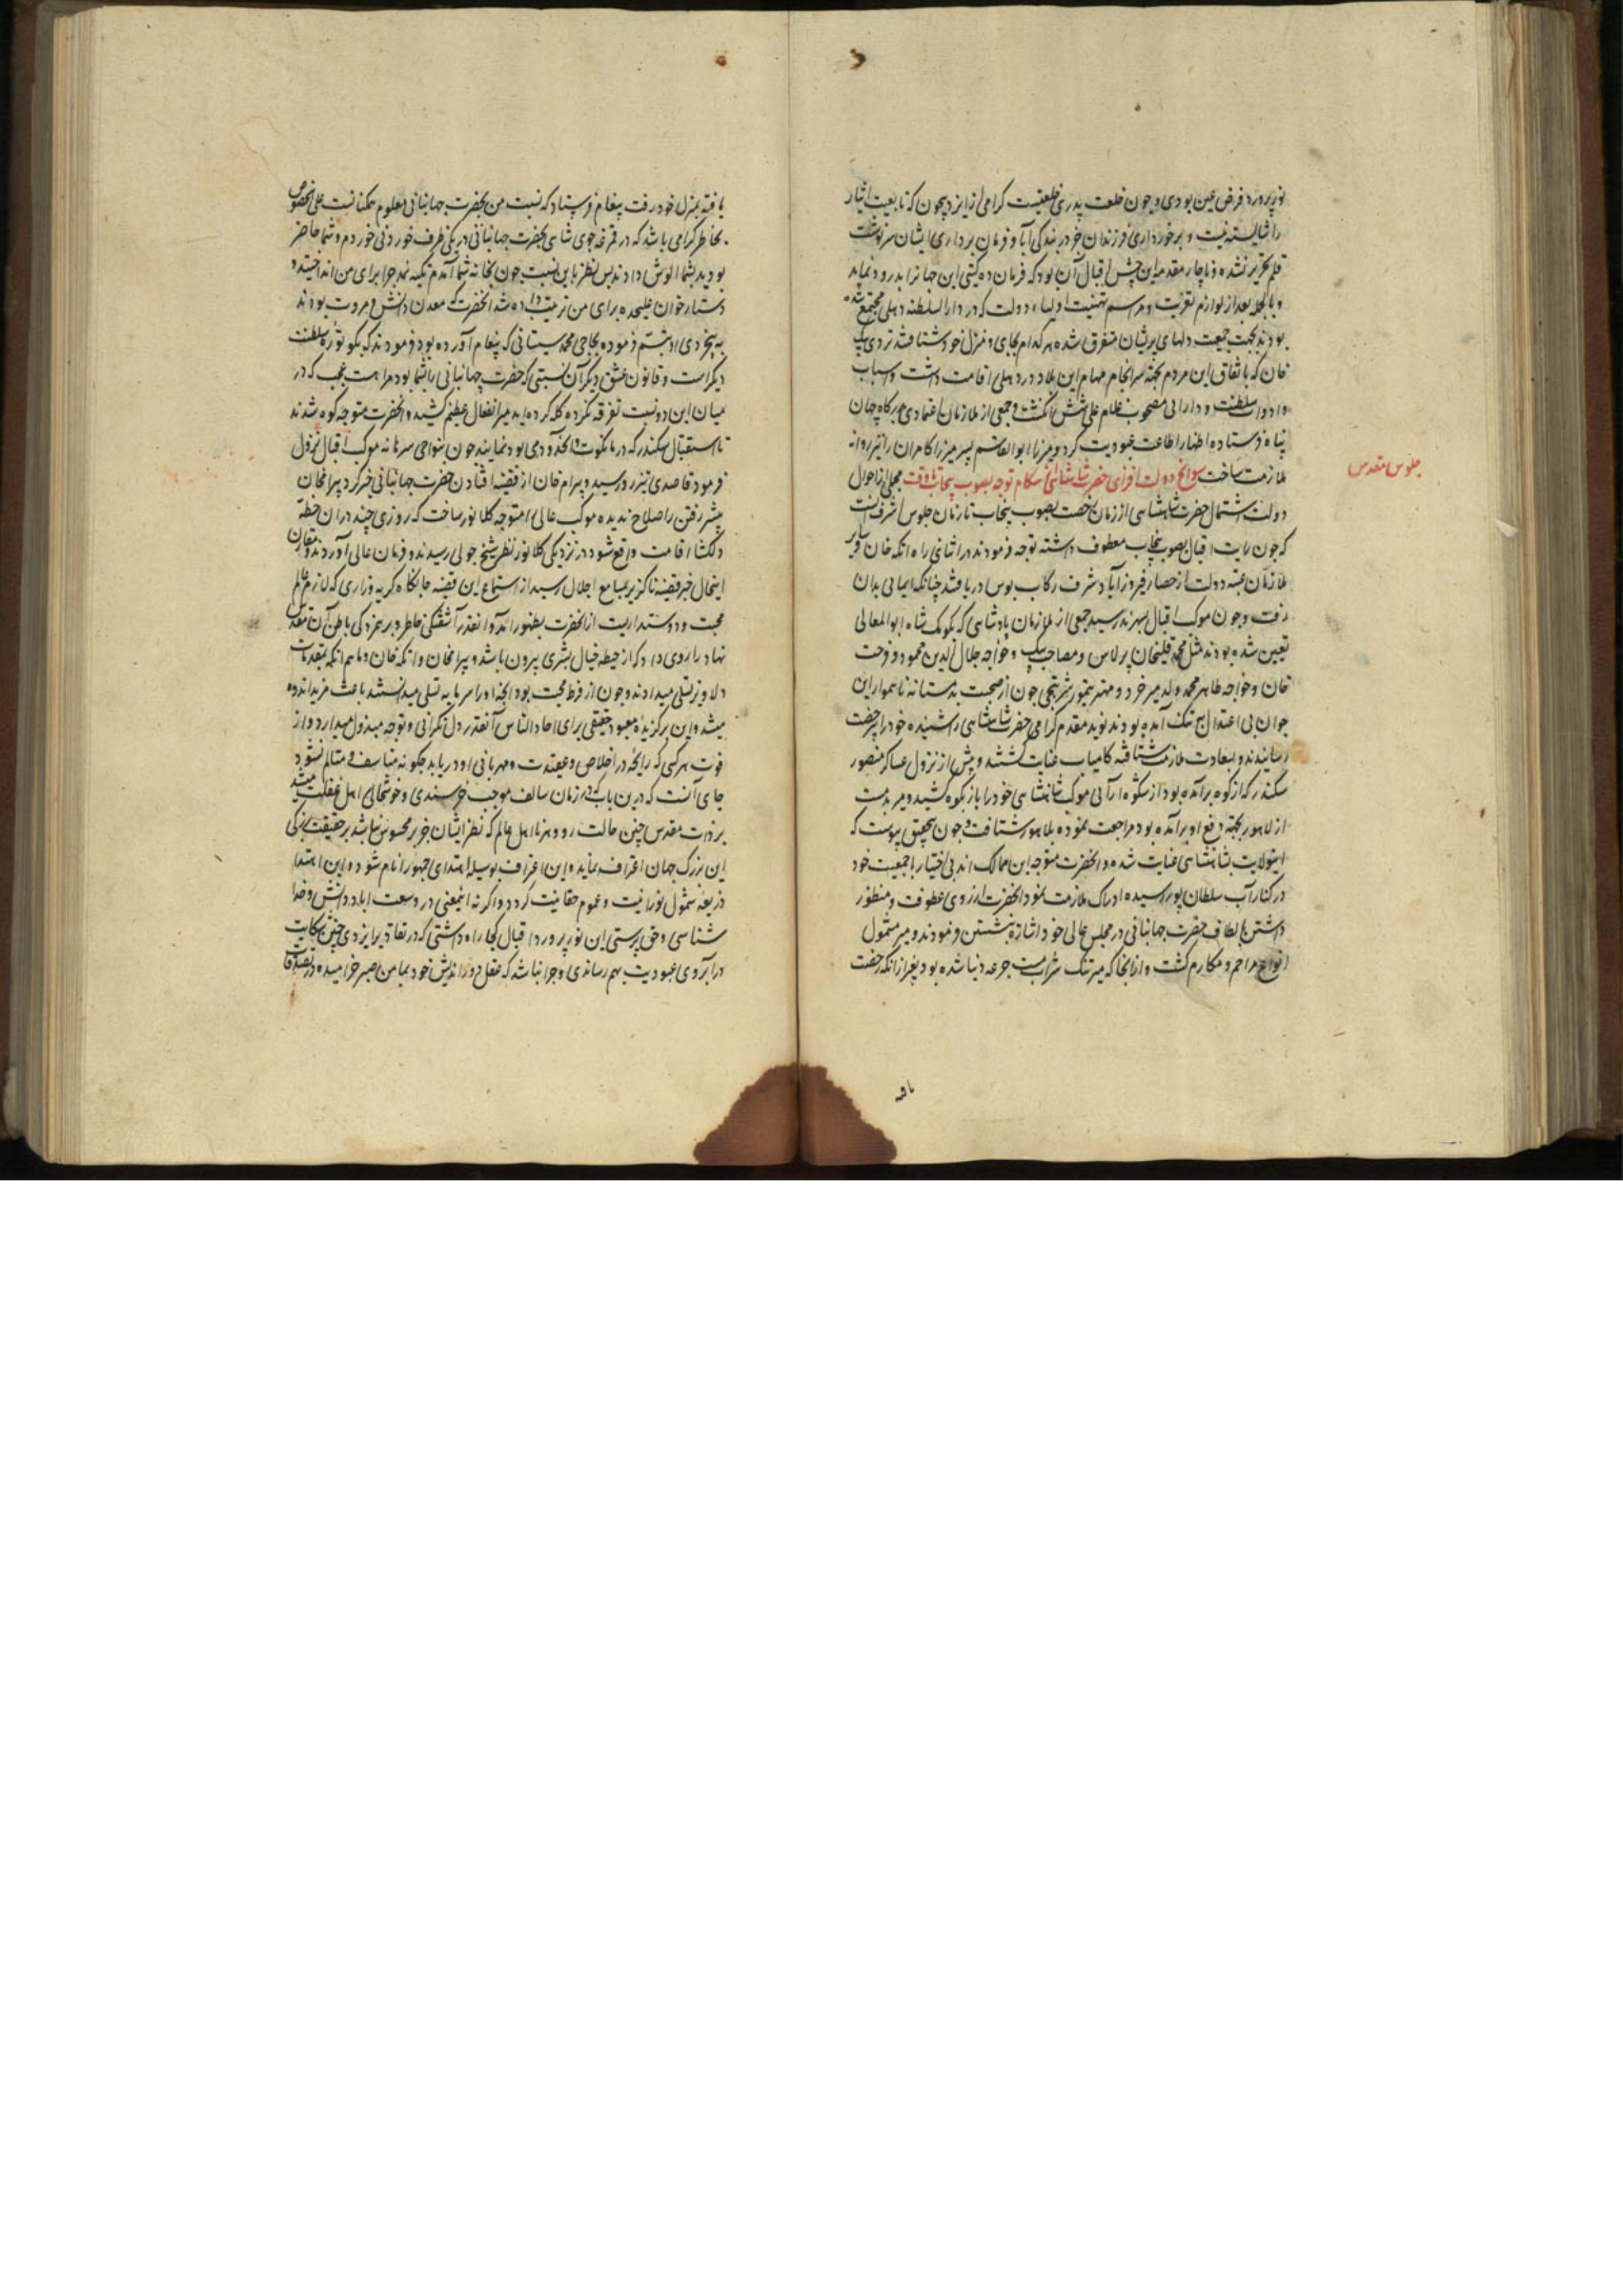 نورپرورد فرض عین بودی و چون خلعت پدری خلعتیست گرامی از ایزد بیچون که تابعیت ایثار
را شایسته نیست و برخورداری فرزندان خرد در بندگی آبا و فرمان برداری ایشان سرنوشت
قلم تقدیر نشده ناچار مقدمه این جشن اقبال آن بود که فرمان ده گیتی این جهانرا بدرود نماید
و بالجمله بعد از لوازم تعزیت و مراسم تهنیت اولیاء دولت که در دارالسلطنه دهلی مجتمع شده
بودند بجهت جمعیت دلهای پریشان متفرق شده هر کدام بجای و منزل خود شتافتند تردی بیک
خان که باتفاق این مردم بجهة سرانجام مهام این بلاد در دهلی اقامت داشت و اسباب
و ادوات سلطنت و دارایی مصحوب غلام علی شش انگشت و جمعی از ملازمان اعتمادی بدرگاه جهان
پناه فرستاده اظهار اطاعت عبودیت کرد و میرزا ابوالقاسم پسر میرزا کامران را نیز روانه
ملازمت ساخت سوانح دولت افزای حضرت شاهنشاهی از هنگام توجه بصوب پنجاب تا وقت مجملی از احوال
جلوس مقدس
دولت اشتمال حضرت شاهنشاهی از زمان رخصت بصوب پنجاب تا زمان جلوس اشرف آنست
که چون رایت اقبال بصوب پنجاب معطوف داشته توجه فرمودند در اثنای راه اتکه خان و سایر
ملازمان عتبه دولت از حصار فیروزآباد شرف رکاب بوس دریافتند چنانکه ایمایی بدان
رفت و چون موکب اقبال بسهرند رسید جمعی از ملازمان پادشاهی که بکومک شاه ابوالمعالی
تعیین شده بودند مثل محمد قلیخان برلاس و مصاحب بیک و خواجه جلال الدین محمود و فرحت
خان و خواجه طاهر محمد ولد میر خرد و مهتر تیمور شربتچی چون از صحبت بدمستانه ناهموار این
جوان بی اعتدال به تنگ آمده بودند نوید مقدم گرامی حضرت شاهنشاهی را شنیده خود را بی رخصت
رسانیدند و بسعادت ملازمت شتافته کامیاب عنایت گشتند و پیش از نزول عساکر منصور
سکندر که از کوه برآمده بود از شکوه آرائی موکب شاهنشاهی خود را باز بکوه کشید و میر بدمست
از لاهور بجهة دفع او برآمده بود مراجعت نموده بلاهور شتافت و چون بتحقیق پیوست که
این ولایت بشاهنشاهی عنایت شده و آنحضرت متوجه این ممالک اند بی اختیار با جمعیت خود
در کنار آب سلطان پور رسیده ادراک ملازمت نمود آنحضرت از روی عطوفت و منظور
داشتن الطاف حضرت جهانبانی در مجلس عالی خود اشاره نشستن فرمودند و میر مشمول
انواع مراحم و مکارم گشت و از آنجا که میر تنک شراب مست جرعه دنیا شده بود بغیر از آنکه رخصت
یافته بمنزل خود رفت پیغام فرستاد که نسبت من بحضرت جهانبانی معلوم همکنانست علی الخصوص
بخاطر گرامی باشد که در قمرغه جوی شاهی بحضرت جهانبانی در یکی ظرف خوردنی خوردم و شما حاضر
بودید بشما الوش دادند پس نظر باین نسبت چون بخانه شما آمدم تکیه نمد جدا برای من انداختند و
دستارخوان علیحده برای من ترتیب داده شد آنحضرت که معدن دانش و مروت بودند
به بیخردی او تبسم فرموده بحاجی محمد سیستانی که پیغام آورده بود فرمودند که بگو تورۀ سلطنت
دیگر است و قانون عشق دیگر آن نسبتی که حضرت جهانبانی را بشما بود مرا نیست عجب که در
میان این دو نسبت تفرقه نکرده گله کرده اید میر انفعال عظیم کشید و آنحضرت متوجه کوه شدند
تا استقبال سکندر که در مانکوت و آن حدود می بود نمایند چون بنواحی سرمانه موکب اقبال نزول
فرمود قاصدی تیزرو رسید و بیرام خان از قضیه افتادن حضرت جهانبانی خبر کرد بیرامخان
پیشتر رفتن را صلاح ندیده موکب عالی را متوجه کلانور ساخت که روزی چند در آن خطه
دلگشا اقامت واقع شود در نزدیکی کلانور نظر شیخ جولی رسیدند و فرمان عالی آوردند و مقارن
اینحال خبر قضیه ناگزیر بمسامع اجلال رسید از استماع این قضیه جانکاه گریه و زاری که لازم عالم
محبت و دوستداریست از آنحضرت بظهور آمد و آنقدر آشفتگی خاطر و برهمزدگی باطن آن مقدس
نهاد را روی داد که از حیطه خیال بشری بیرون باشد و بیرامخان و اتکه خان و ماهم انکه بمقدمات
دلاویز تسلی میدادند و چون از فرط محبت بود آنچه او را سرمایه تسلی میدانستند باعث مزید اندوه
میشد و این برگزیدۀ معبود حقیقی برای احاد الناس آنقدر دل نگرانی و توجه مبذول میدارد و از
فوت هر کسی که رایحه در اخلاص و عقیدت و مهربانی او دریابد چگونه متاسف و متالم نشود
جای آنست که درین باب که در زمان سالف موجب خرسندی و خوشحالی اهل غفلت میشد
بر ذات مقدس چنین حالت رو دهد تا اهل عالم که نظر ایشان جز بر محسوس نباشد بر حقیقت بزرگی
این بزرگ جهان اعتراف نماید و این اعتراف وسیله اهتدای جمهور انام شود و این اهتدا
ذریعه شمول نورانیت و عموم حقانیت گردد و اگر نه اینمعنی در وسعت آباد دانش و خدا
شناسی و حق پرستی این نورپرورد اقبال کجا راه داشتی که در نقاد بر ایزدی چنین شکایت
در آبروی عبودیت بهم رساندی و چرا نباشد که عقل دوراندیش خود بمامن صبر خرامیده در تصدقات